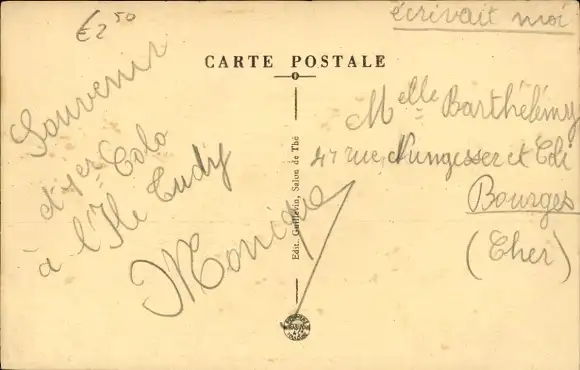 €2.50
écrivait moi
CARTE POSTALE
Souvenir
d'1er Colo
à l'Ile Tudy
Monique
Melle Barthélémy
47 rue Nungesser et Coli
Bourges
(Cher)
Edit. Guillevin, Salon de Thé